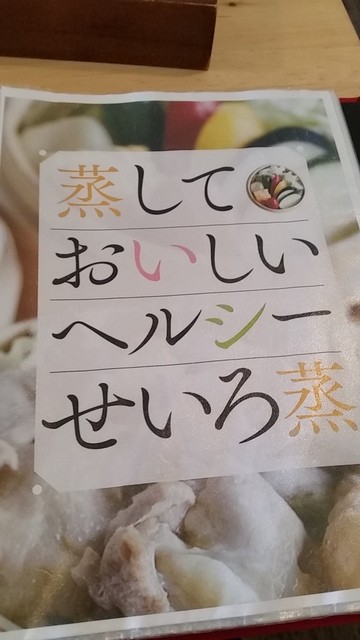 蒸して
おいしい
ヘルシー
せいろ蒸